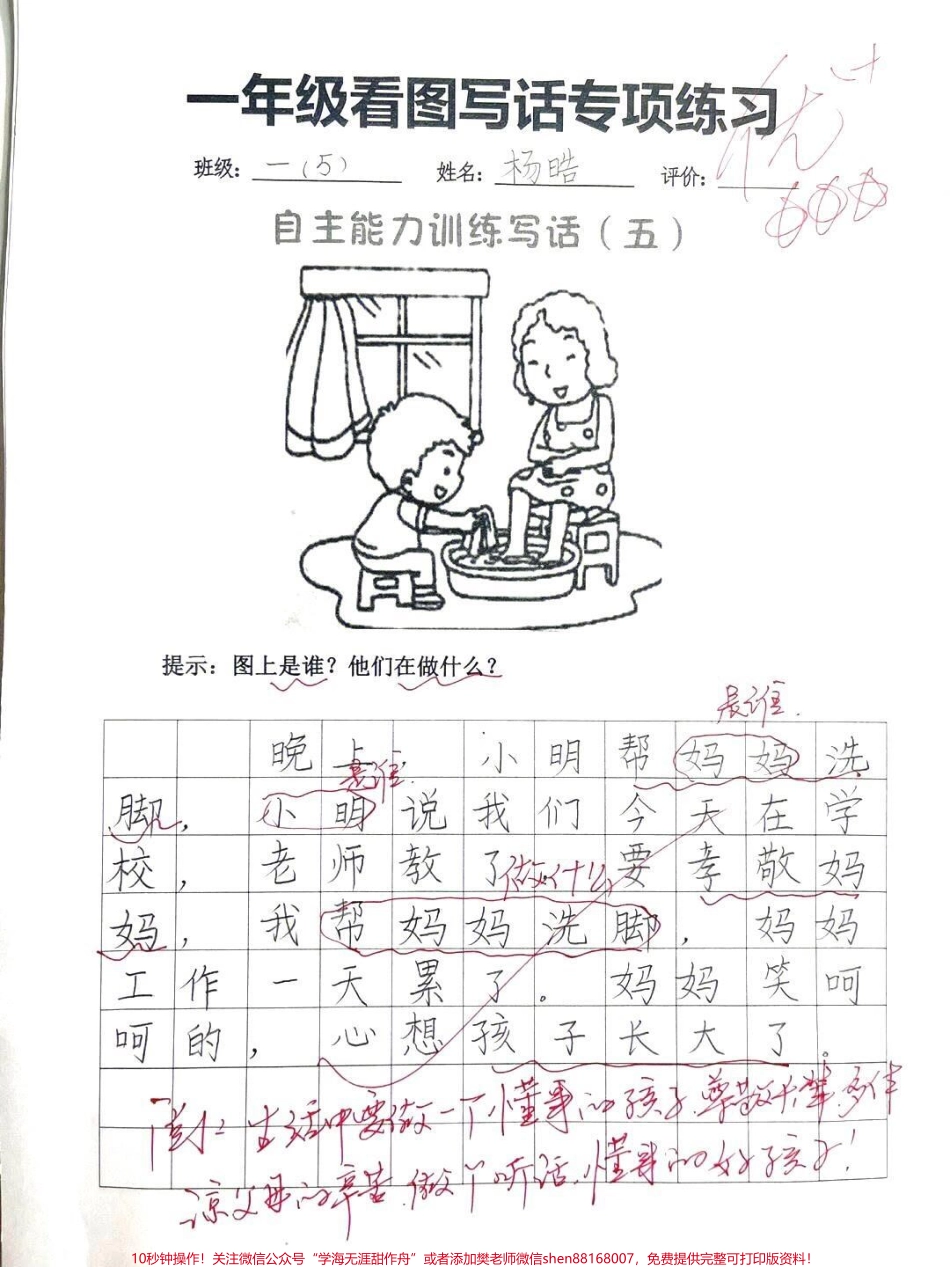 一年级看图写话专项练习
优+
班级：一（5） 姓名：杨晧 评价：
自主能力训练写话（五）
提示：图上是谁？他们在做什么？
是谁.
晚上，小明帮妈妈洗
是谁.
脚，小明说我们今天在学
校，老师教了要孝敬妈
做什么
妈，我帮妈妈洗脚，妈妈
工作一天累了。妈妈笑呵
呵的，心想孩子长大了。
生活中要做一个懂事的孩子.尊敬长辈,多体
凉父母的辛苦.做个听话.懂事的好孩子!
10秒钟操作！关注微信公众号“学海无涯甜作舟”或者添加樊老师微信shen88168007，免费提供完整可打印版资料！